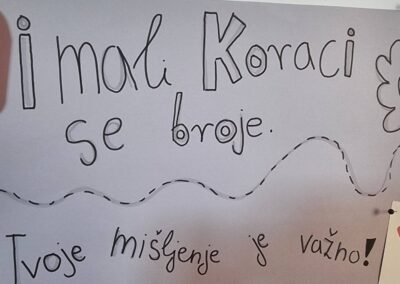 i mali Koraci
se broje.
Tvoje mišljenje je važno!